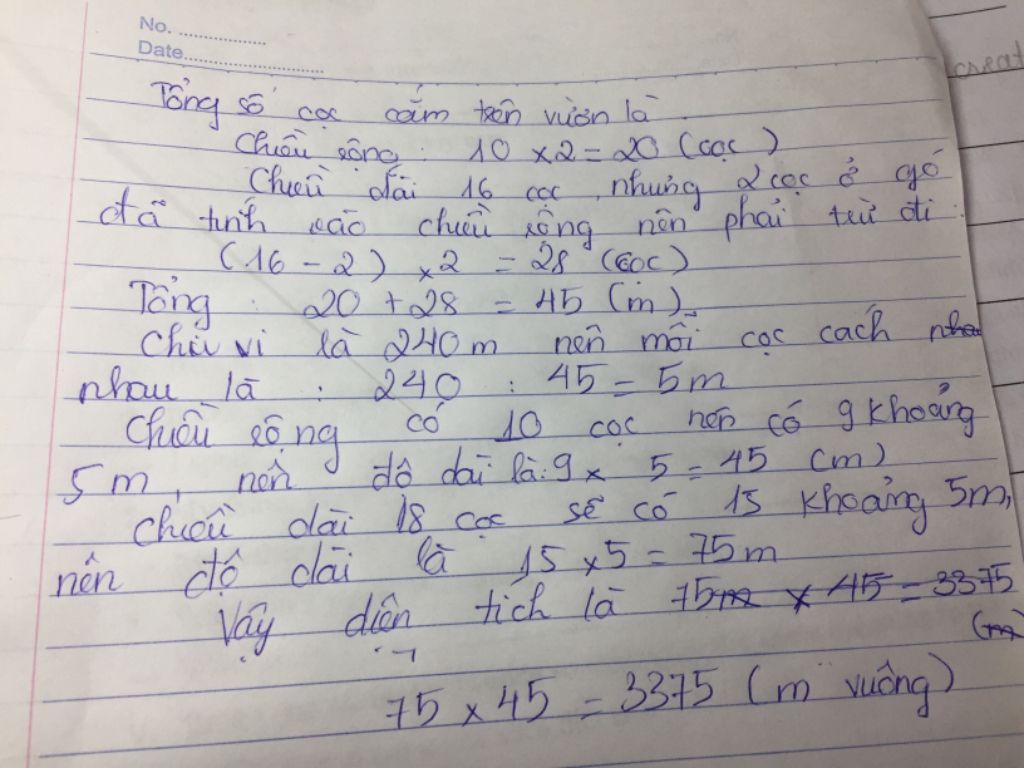 No. ................
Date..........................
creat
Tổng số cọc cắm trên vườn là
Chiều rộng : 10 x 2 = 20 (cọc)
Chiều dài 16 cọc, nhưng 2 cọc ở gó
đã tính vào chiều rộng nên phải trừ đi :
(16 - 2) x 2 = 28 (cọc)
Tổng : 20 + 28 = 45 (m)
Chu vi là 240 m nên mỗi cọc cách nhau
nhau là : 240 : 45 = 5m
Chiều rộng có 10 cọc nên có 9 khoảng
5 m, nên độ dài là: 9 x 5 = 45 (m)
Chiều dài 18 cọc sẽ có 15 khoảng 5m,
nên độ dài là 15 x 5 = 75m
Vậy diện tích là 75m x 45 = 3375
(m)
75 x 45 = 3375 (m vuông)